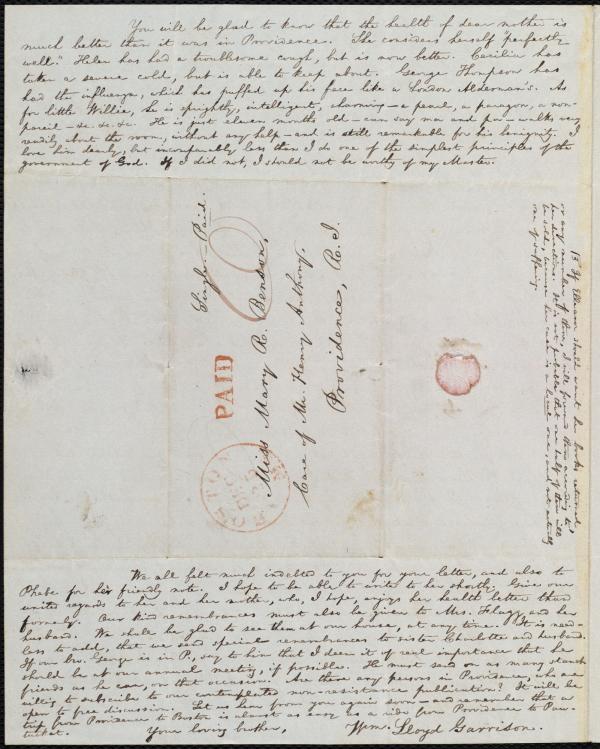 You will be glad to know that the health of dear mother is
much better than it was in Providence. She considers herself "perfectly
well." Helen has had a troublesome cough, but is now better. Cecilia has
taken a severe cold, but is able to keep about. George Thompson has
had the influenza, which has puffed up his face like a London Alderman's. As
for little Willie, he is sprightly, intelligent, charming—a pearl, a paragon, a non-
pareil—&c. &c. &c. He is just eleven months old—can say ma and pa—walks very
readily about the room, without any help—and is still remarkable for his benignity. I
love him dearly, but incomparably less than I do one of the simplest principles of the
government of God. If I did not, I should not be worthy of my Master.
Single—Paid.
6
PAID
BOSTON
DEC
MAS
Miss Mary R. Benson,
Care of Mr. Henry Anthony,
Providence, R. I.
If Eleanor should want her books returned,
or any number of them, I will forward them according to
her directions. It is not probable that one half of them will
be sold, because her case is a local one, and not actually
one of suffering.
We all felt much indebted to you for your letter, and also to
Phebe for her friendly note. I hope to be able to write to her shortly. Give our
united regards to her and her mother, who, I hope, enjoys her health better than
formerly. Our kind remembrances must also be given to Mrs. Flagg and her
husband. We shall be glad to see them at our house, at any time. It is need-
less to add, that we send special remembrances to sister Charlotte and husband.
If our bro. George is in P., say to him that I deem it of real importance that he
should be at our annual meeting, if possible. He must send on as many staunch
friends as he can, on that occasion. Are there any persons in Providence, who are
willing to subscribe to our contemplated non-resistance publication? It will be
open to free discussion. Let us hear from you again soon—and remember that a
trip from Providence to Boston is almost as easy as a ride from Providence to Paw-
tucket.
Your loving brother,
Wm. Lloyd Garrison.